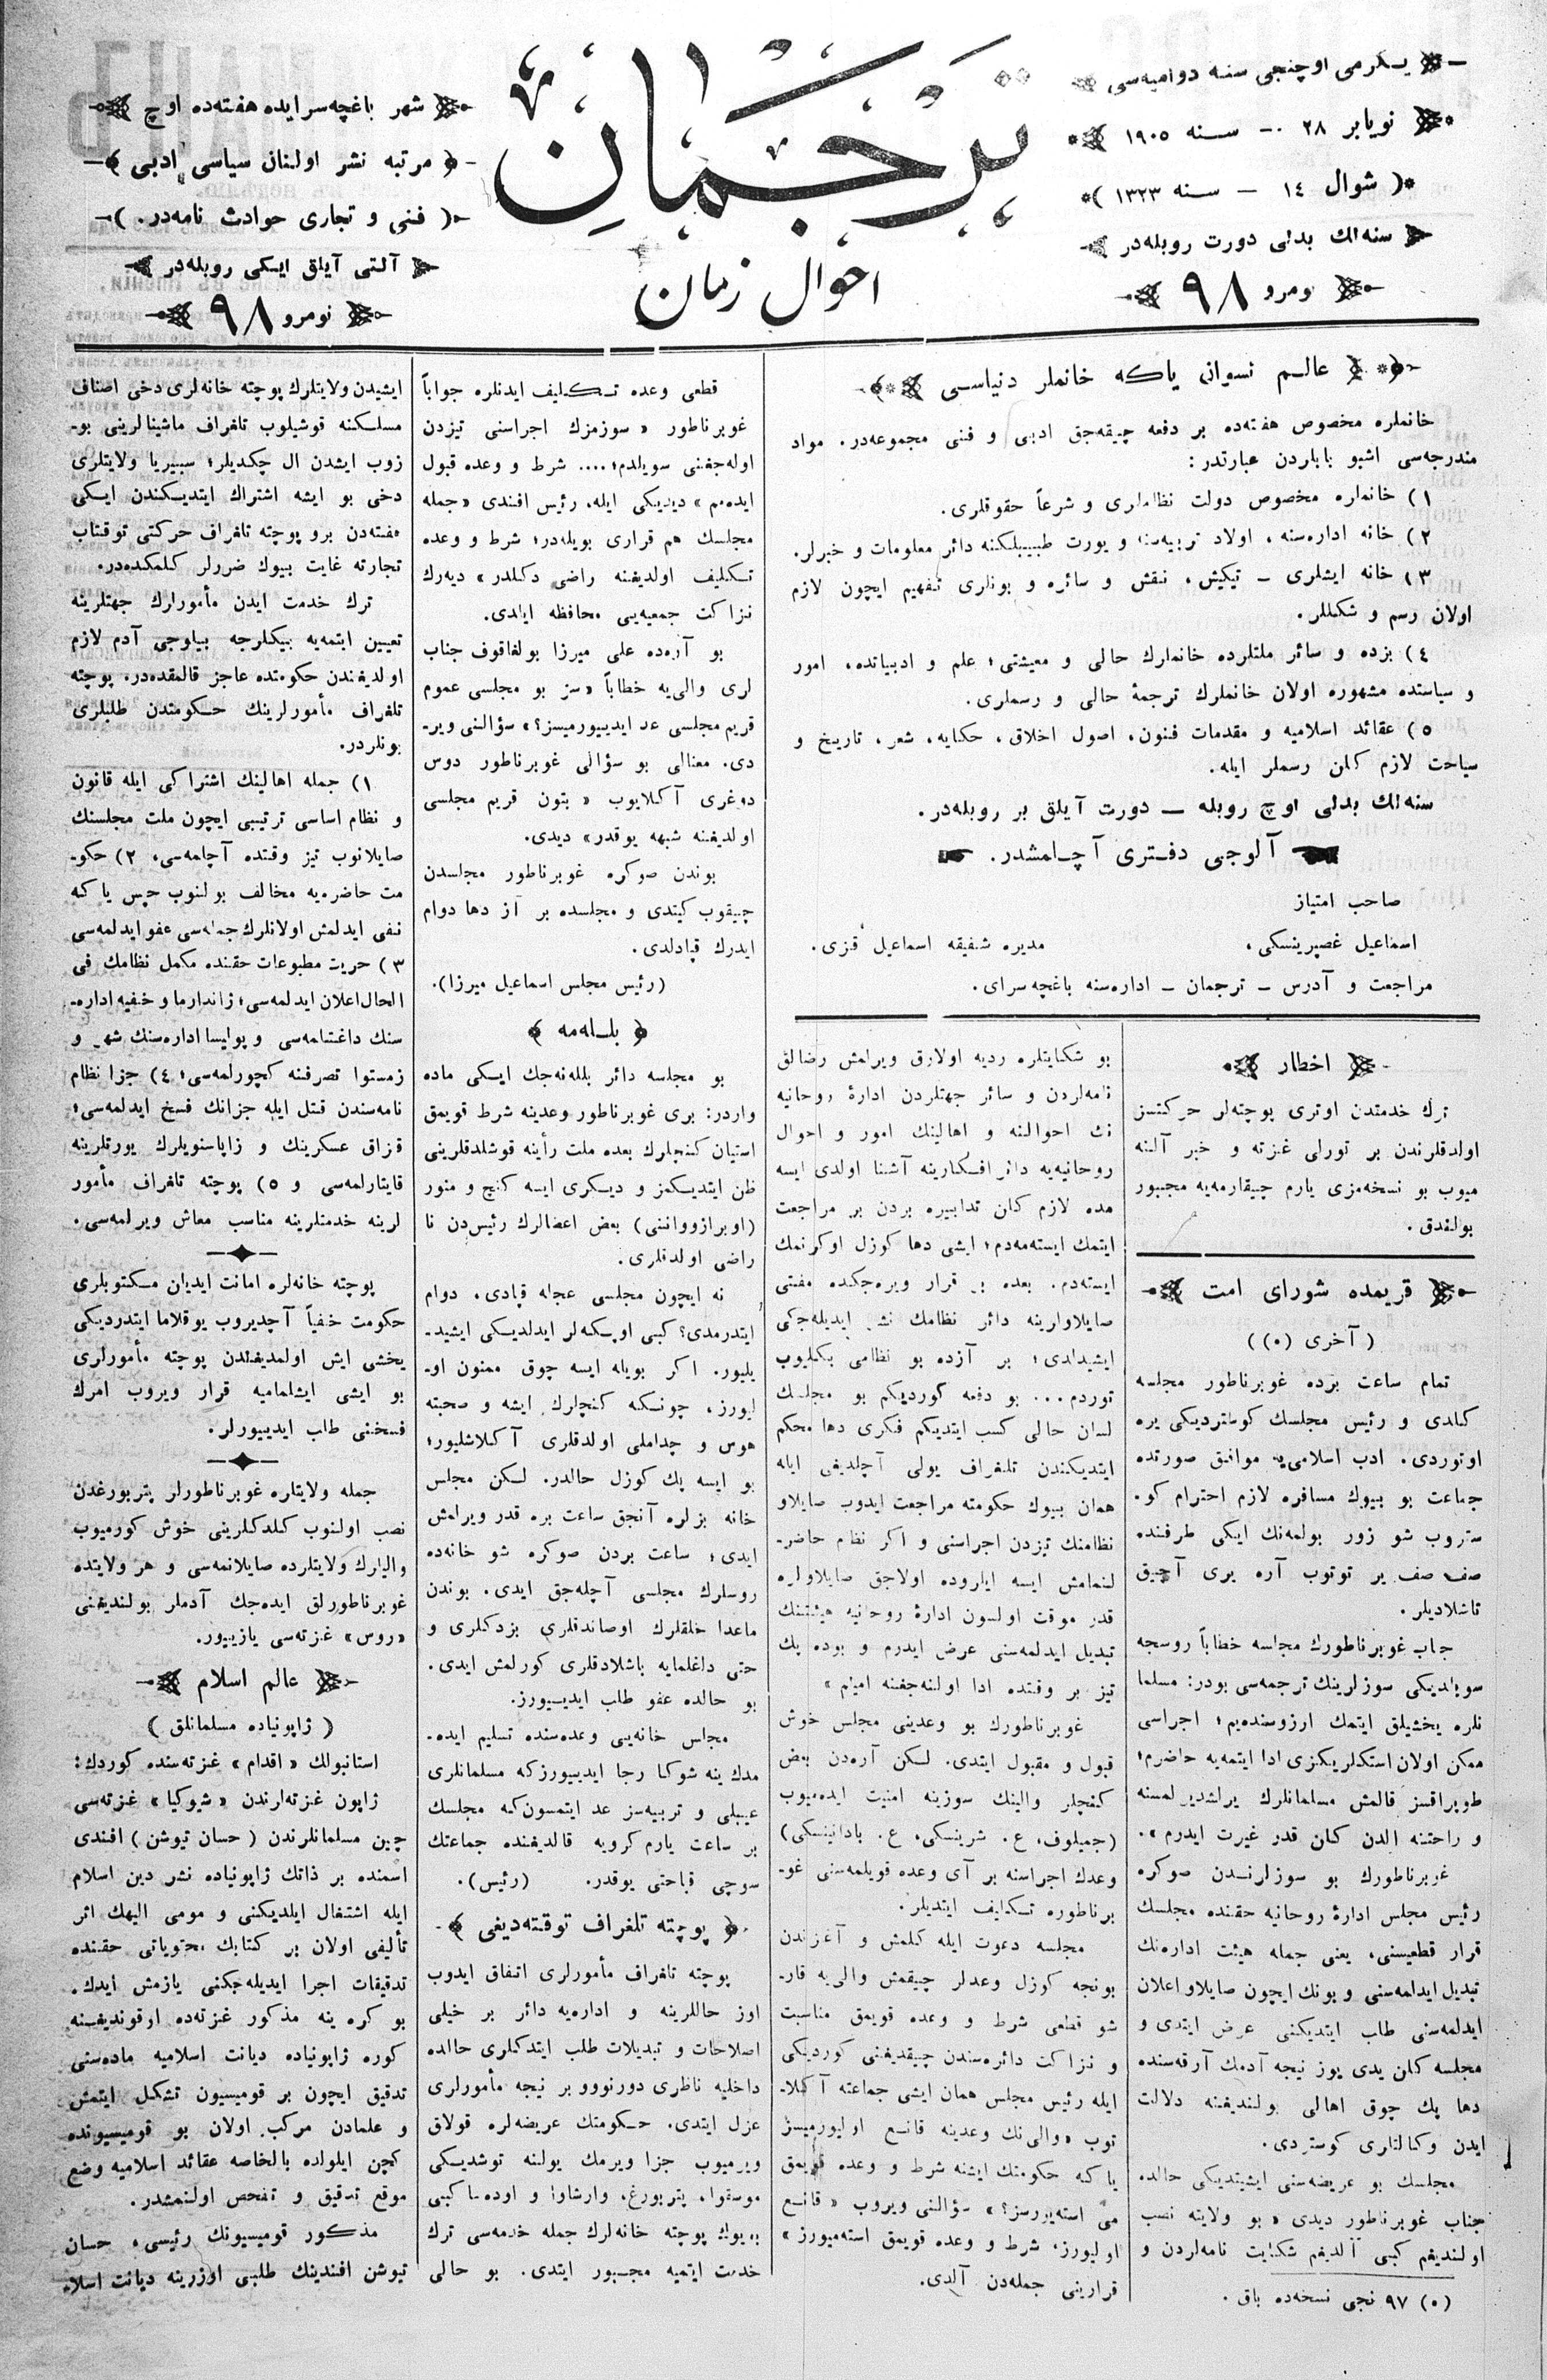 یكرمی اوچنجی سنه دوامیه‌سی
نویابر ٢٨ — سنه ١٩٠٥
( شوال ١٤ — سنه ١٣٢٣ )
سنه‌لك بدلی دورت روبله‌در
نومرو ٩٨
ترجمان
احوال زمان
شهر باغچه‌سرایده هفته‌ده اوچ
مرتبه نشر اولنان سیاسی ادبی
( فنی و تجاری حوادث نامه‌در. )
آلتی آیلق ایكی روبله‌در
نومرو ٩٨
عالم نسوانی یاكه خانملر دنیاسی
خانملره مخصوص هفته‌ده بر دفعه چیقه‌جق ادبی و فنی مجموعه‌در. مواد
مندرجه‌سی اشبو بابلردن عبارتدر:
١) خانملره مخصوص دولت نظاملری و شرعاً حقوقلری.
٢) خانه اداره‌سنه، اولاد تربیه‌سنه و یورت طبیبلكنه دائر معلومات و خبرلر.
٣) خانه ایشلری — تیكیش، نقش و سائره و بونلری تفهیم ایچون لازم
اولان رسم و شكللر.
٤) بزده و سائر ملتلرده خانملرك حالی و معیشتی؛ علم و ادبیاتده، امور
و سیاستده مشهوره اولان خانملرك ترجمۀ حالی و رسملری.
٥) عقائد اسلامیه و مقدمات فنون، اصول اخلاق، حكایه، شعر، تاریخ و
سیاحت لازم كلن رسملر ایله.
سنه‌لك بدلی اوچ روبله — دورت آیلق بر روبله‌در.
آلوجی دفتری آچلمشدر.
صاحب امتیاز
اسماعیل غصپرینسكی، مدیره شفیقه اسماعیل قزی.
مراجعت و آدرس — ترجمان — اداره‌سنه باغچه‌سرای.
اخطار
ترك خدمتدن اوتری پوچته‌لر حركتسز
اولدقلرندن بر تورلی غزته و خبر آلنه
میوب بو نسخه‌مزی یارم چیقارمه‌یه مجبور
بولندق.
قریمده شورای امت
( آخری (٠) )
تمام ساعت برده غوبرناطور مجلسه
كلدی و رئیس مجلسك كوستردیكی یره
اوتوردی. ادب اسلامی‌یه موافق صورتده
جماعت بو بیوك مسافره لازم احترام كو-
ستروب شو زور بولمه‌نك ایكی طرفنده
صف صف یر توتوب آره یری آچیق
تاشلادیلر.
جناب غوبرناطورك مجلسه خطاباً روسجه
سویلدیكی سوزلرینك ترجمه‌سی بودر: مسلما
نلره یخشیلق ایتمك ارزوسنده‌یم؛ اجراسی
ممكن اولان استكلریكزی ادا ایتمه‌یه حاضرم؛
طوپراقسز قالمش مسلمانلرك یرلشدیرلمسنه
و راحتنه الدن كلن قدر غیرت ایدرم».
غوبرناطورك بو سوزلرندن صوكره
رئیس مجلس ادارۀ روحانیه حقنده مجلسك
قرار قطعیسنی، یعنی جمله هیئت اداره‌نك
تبدیل ایدلمه‌سنی و بونك ایچون صایلاو اعلان
ایدلمه‌سنی طلب ایتدیكنی عرض ایتدی و
مجلسه كلن یدی یوز نیجه آدمك آرقه‌سنده
دها پك چوق اهالی بولندیغنه دلالت
ایدن وكالتلری كوستردی.
مجلسك بو عریضه‌سنی ایشیتدیكی حالده
جناب غوبرناطور دیدی «بو ولایته نصب
اولندیغم كبی آلدیغم شكایت نامه‌لردن و
(٠) ٩٧ نجی نسخه‌ده باق.
بو شكایتلره ردیه اولارق ویرلمش رضالق
نامه‌لردن و سائر جهتلردن ادارۀ روحانیه
نك احوالنه و اهالینك امور و احوال
روحانیه‌یه دائر افكارینه آشنا اولدی ایسه
مده لازم كلن تدابیره بردن بر مراجعت
ایتمك ایسته‌مه‌دم؛ ایشی دها كوزل اوكرنمك
ایسته‌دم. بعده بر قرار ویره‌جكده مفتی
صایلاولرینه دائر نظامك نشر ایدیله‌جكی
ایشیدلدی؛ بر آزده بو نظامی بكلیوب
توردم... بو دفعه كوردیكم بو مجلسك
لسان حالی كسب ایتدیكم فكری دها محكم
ایتدیكندن تلغراف یولی آچلدیغی ایله
همان بیوك حكومته مراجعت ایدوب صایلاو
نظامنك تیزدن اجراسنی و اكر نظام حاضر-
لنمامش ایسه ایلروده اولاجق صایلاولره
قدر موقت اولسون ادارۀ روحانیه هیئتنك
تبدیل ایدلمه‌سنی عرض ایدرم و بوده پك
تیز بر وقتده ادا اولنه‌جغنه امینم»
غوبرناطورك بو وعدینی مجلس خوش
قبول و مقبول ایتدی. لكن آره‌دن بعض
كنچلر والینك سوزینه امنیت ایده‌میوب
(جمیلوف، ع. شرینسكی، ع. بادانینسكی)
وعدك اجراسنه بر آی وعده قویلمه‌سنی غو-
برناطوره تكلیف ایتدیلر.
مجلسه دعوت ایله كلمش و آغزندن
بونجه كوزل وعدلر چیقمش والی‌یه قار-
شو قطعی شرط و وعده قویمق مناسبت
و نزاكت دائره‌سندن چیقدیغنی كوردیكی
ایله رئیس مجلس همان ایشی جماعته آكلا-
توب «والی‌نك وعدینه قانع اولیورمیسز
یاكه حكومتك ایشنه شرط و وعده قویمق
می استه‌یورسز؟» سؤالنی ویروب «قانع
اولیورز، شرط و وعده قویمق استه‌میورز»
قرارینی جمله‌دن آلدی.
قطعی وعده تكلیف ایدنلره جواباً
غوبرناطور «سوزمزك اجراسنی تیزدن
اوله‌جغنی سویلدم؛.... شرط و وعده قبول
ایده‌مم» دیدیكی ایله، رئیس افندی «جمله
مجلسك هم قراری بویله‌در؛ شرط و وعده
تكلیف اولدیغنه راضی دكلدر» دیه‌رك
نزاكت جمعیه‌یی محافظه ایلدی.
بو آره‌ده علی میرزا بولغاقوف جناب
لری والی‌یه خطاباً «سز بو مجلسی عموم
قریم مجلسی عد ایدییورمیسز؟» سؤالنی ویر-
دی. معنالی بو سؤالی غوبرناطور دوس
دوغری آكلایوب «بتون قریم مجلسی
اولدیغنه شبهه یوقدر» دیدی.
بوندن صوكره غوبرناطور مجلسدن
چیقوب كیتدی و مجلسده بر آز دها دوام
ایدرك قپادلدی.
(رئیس مجلس اسماعیل میرزا).
بللمه
بو مجلسه دائر بللنه‌جك ایكی ماده
واردر: بری غوبرناطور وعدینه شرط قویمق
استیان كنچلرك بعده ملت رأینه قوشلدقلرینی
ظن ایتدیكمز و دیكری ایسه كنچ و منور
(اوبرازووانی) بعض اعضالرك رئیس‌دن نا
راضی اولدقلری.
نه ایچون مجلسی عجله قپادی، دوام
ایتدرمدی؟ كبی اوپكه‌لر ایدلدیكی ایشید-
یلیور. اكر بویله ایسه چوق ممنون او-
لیورز، چونكه كنچلرك ایشه و صحبته
هوس و چداملی اولدقلری آكلاشلیور؛
بو ایسه پك كوزل حالدر. لكن مجلس
خانه بزلره آنجق ساعت بره قدر ویرلمش
ایدی؛ ساعت بردن صوكره شو خانه‌ده
روسلرك مجلسی آچله‌جق ایدی. بوندن
ماعدا خلقلرك اوصاندقلری بزدكلری و
حتی داغلمایه باشلادقلری كورلمش ایدی.
بو حالده عفو طلب ایدیورز.
مجلس خانه‌یی وعده‌سنده تسلیم ایده-
مدك ینه شوكا رجا ایدییورزكه مسلمانلری
عیبلی و تربیه‌سز عد ایتمسون‌كه مجلسك
بر ساعت یارم كرویه قالدیغنده جماعتك
سوچی قباحتی یوقدر. (رئیس).
پوچته تلغراف توقته‌دیغی
پوچته تلغراف مأمورلری اتفاق ایدوب
اوز حاللرینه و اداره‌یه دائر بر خیلی
اصلاحات و تبدیلات طلب ایتدكلری حالده
داخلیه ناظری دورنووو بر نیجه مأمورلری
عزل ایتدی. حكومتك عریضه‌لره قولاق
ویرمیوب جزا ویرمك یولنه توشدیكی
موسقوا، پتربورغ، وارشاوا و اوده‌سا كبی
بیوك پوچته خانه‌لرك جمله خدمه‌سی ترك
خدمت ایتمیه مجبور ایتدی. بو حالی
ایشیدن ولایتلرك پوچته خانه‌لری دخی اصناف
مسلكنه قوشیلوب تلغراف ماشینالرینی بو-
زوب ایشدن ال چكدیلر؛ سیبریا ولایتلری
دخی بو ایشه اشتراك ایتدیكندن ایكی
هفته‌دن برو پوچته تلغراف حركتی توقتاب
تجارته غایت بیوك ضررلر كلمكده‌در.
ترك خدمت ایدن مأمورلرك جهتلرینه
تعیین ایتمه‌یه بیكلرجه بیلوجی آدم لازم
اولدیغندن حكومتده عاجز قالمقده‌در. پوچته
تلغراف مأمورلرینك حكومتدن طلبلری
بونلردر.
١) جمله اهالینك اشتراكی ایله قانون
و نظام اساسی ترتیبی ایچون ملت مجلسنك
صایلانوب تیز وقتده آچلمه‌سی، ٢) حكو-
مت حاضره‌یه مخالف بولنوب حبس یاكه
نفی ایدلمش اولانلرك جمله‌سی عفو ایدلمه‌سی
٣) حریت مطبوعات حقنده مكمل نظامك فی
الحال اعلان ایدلمه‌سی؛ ژاندارما و خفیه اداره-
سنك داغتلمه‌سی و پولیسا اداره‌سنك شهر و
زمستوا تصرفنه كچورلمه‌سی؛ ٤) جزا نظام
نامه‌سندن قتل ایله جزانك فسخ ایدلمه‌سی؛
قزاق عسكرینك و زاپاسنویلرك یورتلرینه
قایتارلمه‌سی و ٥) پوچته تلغراف مأمور
لرینه خدمتلرینه مناسب معاش ویرلمه‌سی.
پوچته خانه‌لره امانت ایدیلن مكتوبلری
حكومت خفیاً آچدیروب یوقلاما ایتدردیكی
یخشی ایش اولمدیغندن پوچته مأمورلری
بو ایشی ایشلمامیه قرار ویروب امرك
فسخنی طلب ایدییورلر.
جمله ولایتلره غوبرناطورلر پتربورغدن
نصب اولنوب كلدكلرینی خوش كورمیوب
والیلرك ولایتلرده صایلانمه‌سی و هر ولایتده
غوبرناطورلق ایده‌جك آدملر بولندیغنی
«روس» غزته‌سی یازییور.
عالم اسلام
( ژاپونیاده مسلمانلق )
استانبولك «اقدام» غزته‌سنده كوردك:
ژاپون غزته‌لرندن «شیوكیا» غزته‌سی
چین مسلمانلرندن (حسان تیوشن) افندی
اسمنده بر ذاتك ژاپونیاده نشر دین اسلام
ایله اشتغال ایلدیكنی و مومی الیهك اثر
تألیفی اولان بر كتابك محتویاتی حقنده
تدقیقات اجرا ایدیله‌جكنی یازمش ایدك.
بو كره ینه مذكور غزته‌ده اوقوندیغنه
كوره ژاپونیاده دیانت اسلامیه ماده‌سنی
تدقیق ایچون بر قومیسیون تشكل ایتمش
و علمادن مركب اولان بو قومیسیونده
كچن ایلولده بالخاصه عقائد اسلامیه وضع
موقع تدقیق و تفحص اولنمشدر.
مذكور قومیسیونك رئیسی، حسان
تیوشن افندینك طلبی اوزرینه دیانت اسلا-